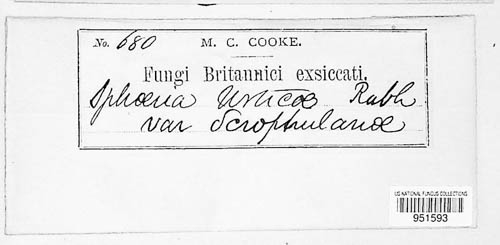 No. 680 M. C. COOKE.
Fungi Britannici exsiccati.
Sphæria Urticæ Rabh
var Scrophulariæ
US NATIONAL FUNGUS COLLECTIONS
951593